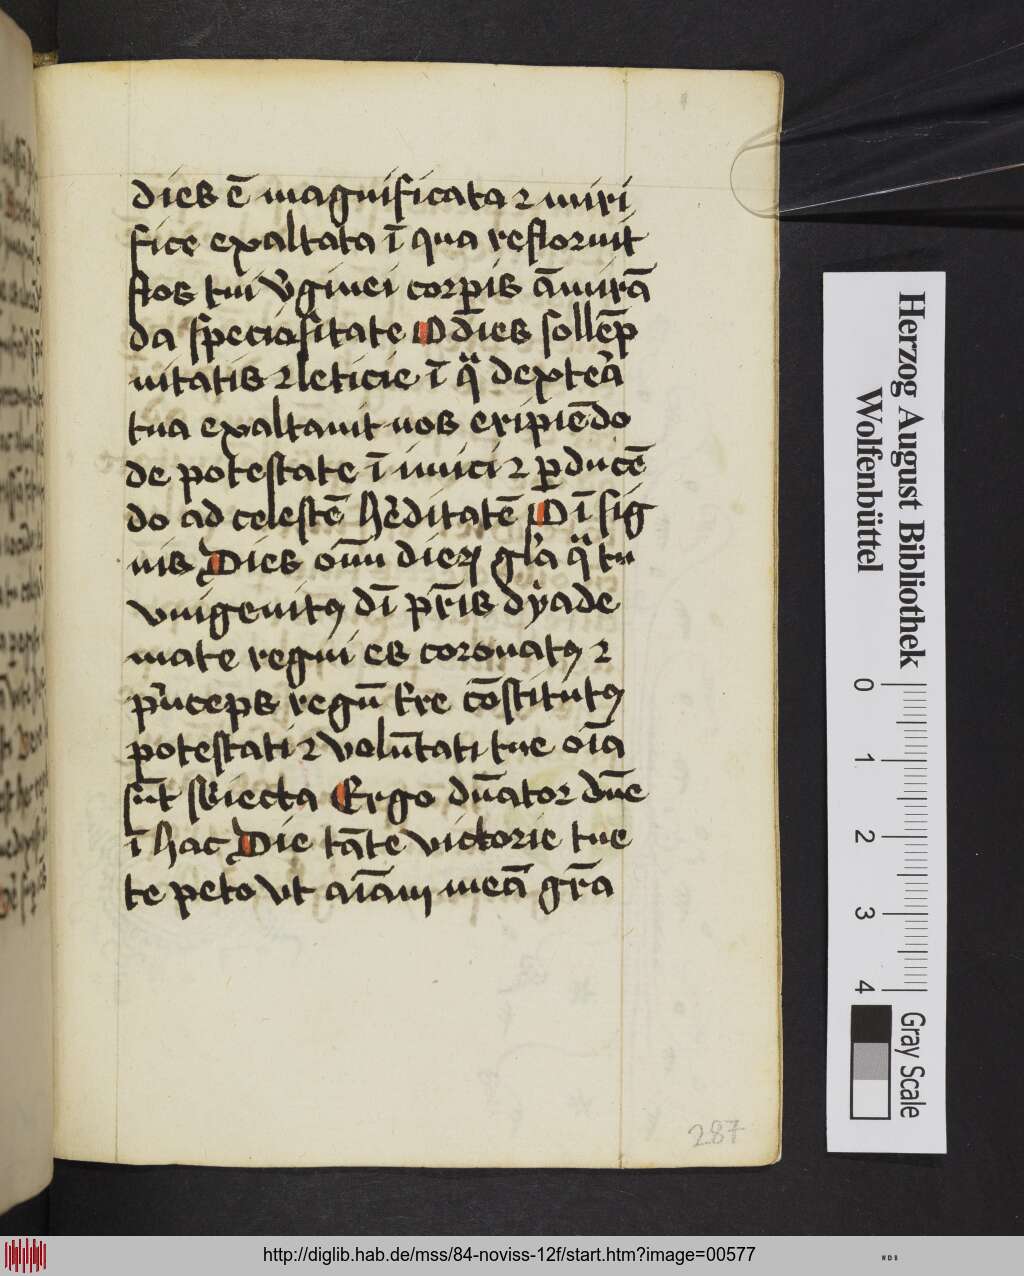 dies ē magnificata ⁊ miri
fice exaltata ī qua refloruit
flos tui v̓ginei corꝑis āmirā
da speciositate O dies sollēp
nitatis ⁊ leticie ī qᷓ dexteᷓ
tua exaltauit nos eripiēdo
de potestate īimici ⁊ ꝑducē
do ad celestē h̓editatē O īsig
nis Dies oīm dieꝝ gl̓a qᷓ tu
vnigenitꝰ dī pr̄is dyade
mate regni es coronatꝰ ⁊
p̓nceps regū t̓re cōstitutꝰ
potestati ⁊ volūtati tue oīa
sūt sb̓iecta Ergo dn̄ator dn̄e
ī hac Die tāte victorie tue
te peto vt aīam meā gr̄a
287
Herzog August Bibliothek
Wolfenbüttel
0 1 2 3 4
Gray Scale
http://diglib.hab.de/mss/84-noviss-12f/start.htm?image=00577